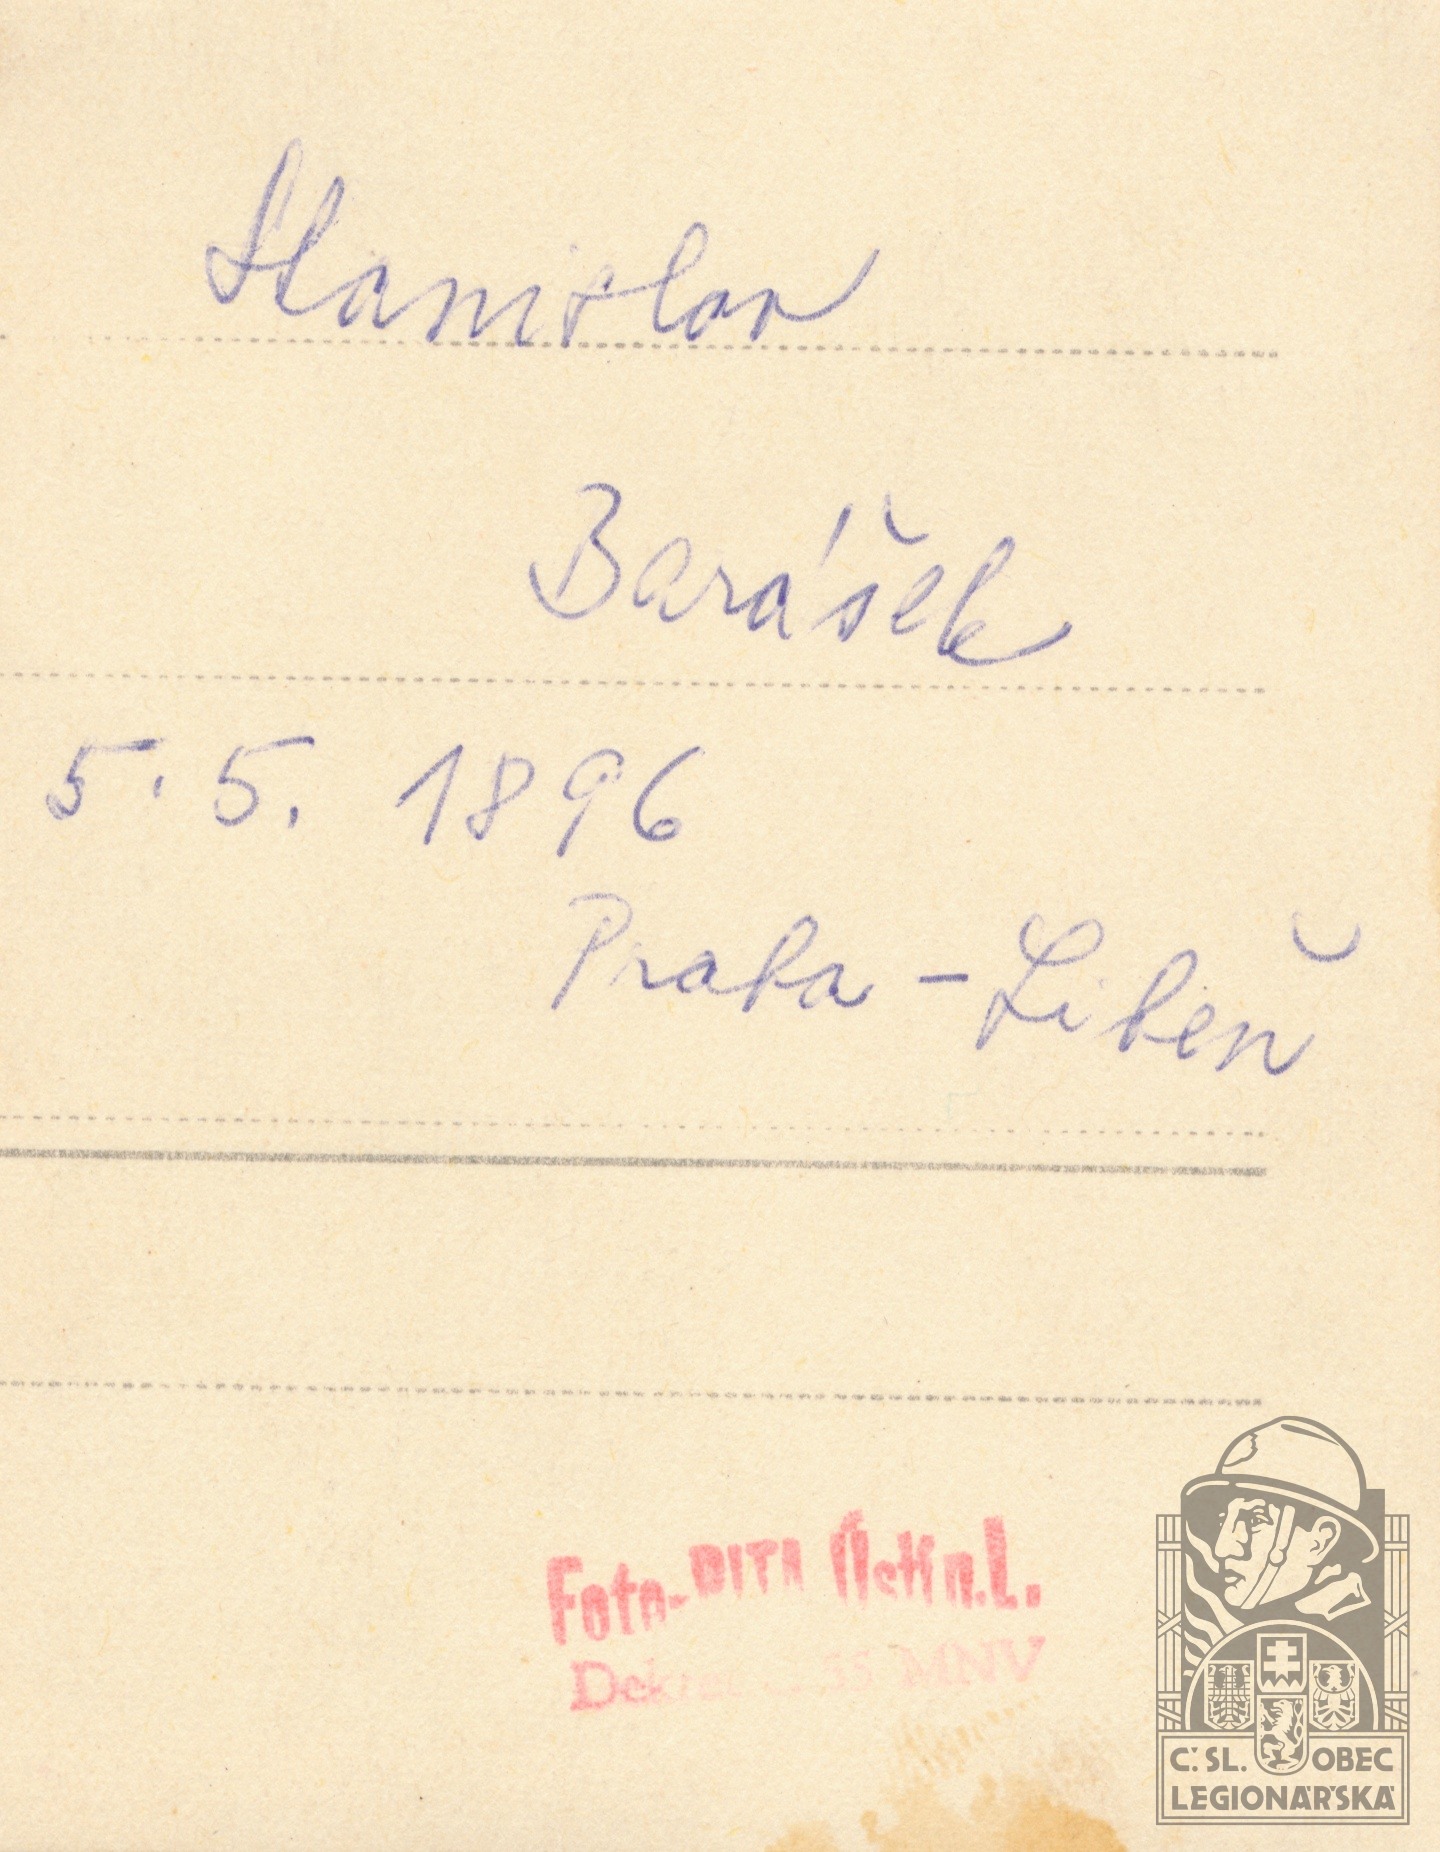 Stanislav
Barášek
5. 5. 1896
Praha - Libeň
Foto-DITA Ústí n.L.
55 MNV
Č.SL. OBEC
LEGIONÁŘSKÁ